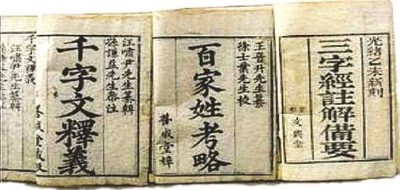 光緒乙未新刻
三字經註解備要
文興堂
王晉升先生纂
徐士業先生校
百家姓考略
善成堂梓
汪嘯尹先生纂輯
孫謙益先生參注
千字文釋義
善成堂梓
汪嘯尹先生纂
千字文釋義